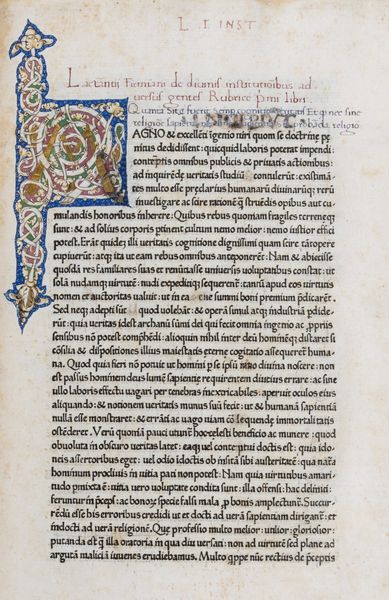 L. I INST
Lactantii Firmiani de diuinis institutionibus ad
uersus gentes Rubrice primi libri
Quanta Sit & fuerit Semp cognitio ueritatis Et q nec sine
religione sapientia nec sine probanda religio
AGNO & excellēti īgenio uiri quom se doctrine pe
nitus dedidissent: quicquid laboris poterat impendi:
contēptis omnibus publicis & priuatis actionibus:
ad inquirēde ueritatis studiū contulerūt: existimā
tes multo esse preclarius humanarū diuinarūq; rerū
inuestigare ac scire rationē q̄ struēdis opibus aut cu
mulandis honoribus inherere: Quibus rebus quoniam fragiles terreneq;
sunt: & ad solius corporis ptinēt cultum nemo melior: nemo iustior effici
potest. Erāt quidē illi ueritatis cognitione dignissimi quam scire tātopere
cupiuerūt: atq; ita ut eam rebus omnibus anteponerēt: Nam & abiecisse
quosdā res familiares suas et renūtiasse uniuersis uoluptatibus constat: ut
solā nudamq; uirtutē: nudi expeditiq; sequerent̄: tantū apud eos uirtutis
nomen et auctoritas ualuit: ut in ea ēne summi boni premium p̄dicarēt.
Sed neq; adepti sūt quod uolebāt: & operā simul atq; industriā pdide
rūt: quia ueritas idest archanū sūmi dei qui fecit omnia ingenio ac ppriis
sensibus nō potest cōprehēdi: alioquin nihil inter deū hominēq; distaret si
cōsilia & dispositiones illius maiestatis eterne cogitatio assequeret̄ huma
na. Quod quia fieri nō potuit ut homini p se ipsū ratio diuina nosceret: non
est passus hominem deus lumē sapientie requirentem diutius errare: ac sine
ullo laboris effectu uagari per tenebras inextricabiles: aperuit oculos eius
aliquando: & notionem ueritatis munus suū fecit: ut & humanā sapientiā
nullā esse monstraret: & errāti ac uago uiam cōsequende immortalitatis
ostēderet. Verū quoniā pauci utunt̄ hoc celesti beneficio ac munere: quod
obuoluta in obscuro ueritas latet: eaq; uel contēptui doctis est: quia ido
neis assertoribus eget: uel odio idoctis ob insitā sibi austeritatē: qua natura
hominum procliuis in uitia pati non potest: Nam quia uirtutibus amari
tudo pmixta ē: uitia uero uoluptate condita sunt: illa offensi: hac deliniti:
feruntur in preceps: ac bonorum specie falsi mala pro bonis amplectunt̄. Succur
rēdū esse his erroribus credidi ut et docti ad uerā sapientiam dirigant̄: et
indocti ad uerā religionē. Que professio multo melior: utilior: gloriosior:
putanda est q̄ illa oratoria in qua diu uersati: non ad uirtutē sed plane ad
argutā maliciā iuuenes erudiebamus. Multo quippe nūc rectius de pceptis